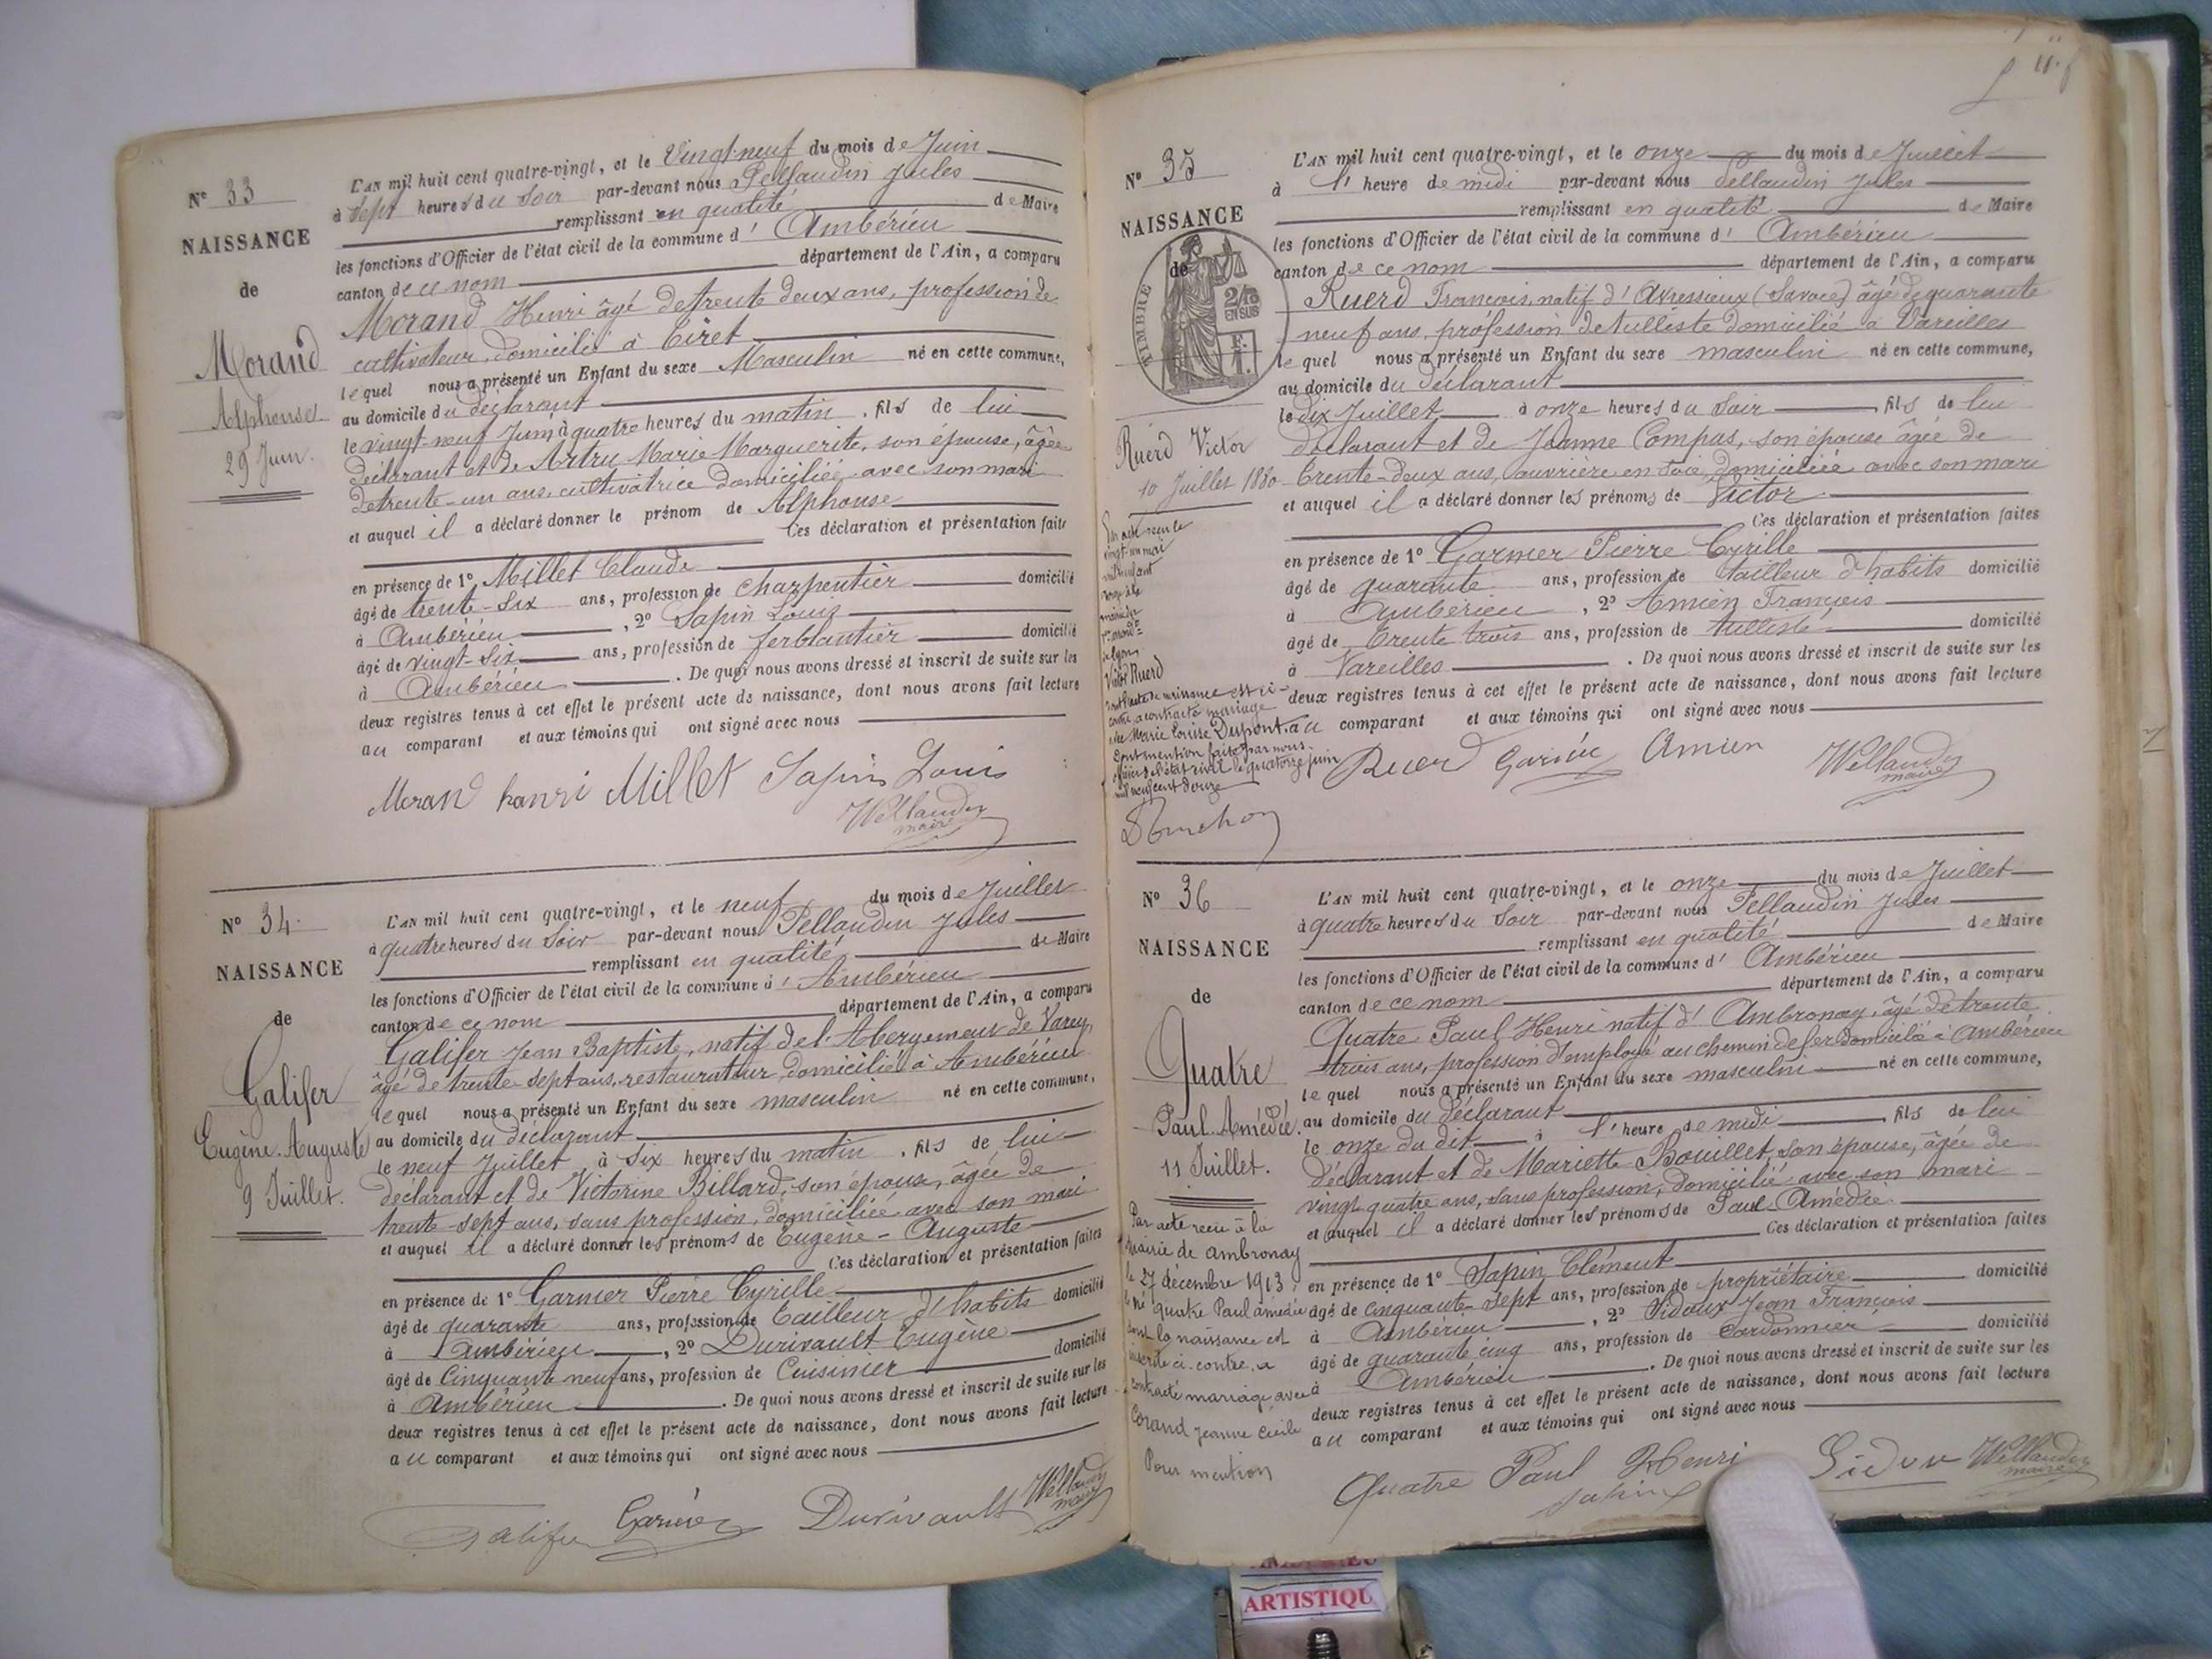 N° 33
NAISSANCE
de
Morand
Alphonse
29 Juin.
L'AN mil huit cent quatre-vingt, et le Vingt-neuf du mois de Juin
à Sept heures du Soir par-devant nous Pellaudin Jules
remplissant en qualité de Maire
les fonctions d'Officier de l'état civil de la commune d' Ambérieu
canton de ce nom département de l'Ain, a comparu
Morand Henri âgé de trente deux ans, profession de
cultivateur, domicilié à Tiret
lequel nous a présenté un Enfant du sexe Masculin né en cette commune,
au domicile du déclarant
le vingt-neuf Juin à quatre heures du matin, fils de lui
déclarant et de Artru Marie Marguerite, son épouse, âgée
de trente-un ans, cultivatrice domiciliée avec son mari
et auquel il a déclaré donner le prénom de Alphonse
Ces déclaration et présentation faite
en présence de 1° Millet Claude
âgé de trente-six ans, profession de charpentier domicilié
à Ambérieu, 2° Sapin Louis
âgé de vingt-six ans, profession de ferblantier domicilié
à Ambérieu. De quoi nous avons dressé et inscrit de suite sur les
deux registres tenus à cet effet le présent acte de naissance, dont nous avons fait lecture
au comparant et aux témoins qui ont signé avec nous
Moran hanri Millet Sapin Louis
Pellaudin
maire
N° 34
NAISSANCE
de
Galifer
Eugène-Auguste
9 Juillet.
L'AN mil huit cent quatre-vingt, et le neuf du mois de Juillet
à quatre heures du Soir par-devant nous Pellaudin Jules
remplissant en qualité de Maire
les fonctions d'Officier de l'état civil de la commune d' Ambérieu
canton de ce nom département de l'Ain, a comparu
Galifer Jean Baptiste, natif de l'Abergement de Varey,
âgé de trente sept ans, restaurateur, domicilié à Ambérieu
lequel nous a présenté un Enfant du sexe masculin né en cette commune,
au domicile du déclarant
le neuf Juillet à six heures du matin, fils de lui
déclarant et de Victorine Billard, son épouse, âgée de
trente-sept ans, sans profession, domiciliée avec son mari
et auquel il a déclaré donner les prénoms de Eugène-Auguste
Ces déclaration et présentation faites
en présence de 1° Garnier Pierre Cyrille
âgé de quarante ans, profession de tailleur d'habits domicilié
à Ambérieu, 2° Durivault Eugène
âgé de Cinquante neuf ans, profession de Cuisinier domicilié
à Ambérieu. De quoi nous avons dressé et inscrit de suite sur les
deux registres tenus à cet effet le présent acte de naissance, dont nous avons fait lecture
au comparant et aux témoins qui ont signé avec nous
Galifer Garnier Durivault Pellaudin
maire
N° 35
NAISSANCE
de
TIMBRE
2/10
EN SUS
Ruerd Victor
10 Juillet 1880
L'AN mil huit cent quatre-vingt, et le onze du mois de Juillet
à l' heure de midi par-devant nous Pellaudin Jules
remplissant en qualité de Maire
les fonctions d'Officier de l'état civil de la commune d' Ambérieu
canton de ce nom département de l'Ain, a comparu
Ruerd François, natif d'Avressieux (Savoie) âgé de quarante
neuf ans, profession de tulliste domicilié à Vareilles
lequel nous a présenté un Enfant du sexe masculin né en cette commune,
au domicile du déclarant
le dix Juillet à onze heures du Soir, fils de lui
déclarant et de Jeanne Compas, son épouse âgée de
trente-deux ans, ouvrière en soie, domiciliée avec son mari
et auquel il a déclaré donner les prénoms de Victor
Ces déclaration et présentation faites
en présence de 1° Garnier Pierre Cyrille
âgé de quarante ans, profession de tailleur d'habits domicilié
à Ambérieu, 2° Amien François
âgé de trente trois ans, profession de tulliste domicilié
à Vareilles. De quoi nous avons dressé et inscrit de suite sur les
deux registres tenus à cet effet le présent acte de naissance, dont nous avons fait lecture
au comparant et aux témoins qui ont signé avec nous
Ruerd Garnier Amien Pellaudin
maire
Par acte reçu le
vingt-un mai
Victor Ruerd
dont l'acte de naissance est ci-
contre, a contracté mariage
avec Marie Louise Dupont.
Dont mention faite par nous
officier de l'état civil le quatorze juin
mil neuf cent douze
N° 36
NAISSANCE
de
Quatre
Paul-Amédée.
11 Juillet.
L'AN mil huit cent quatre-vingt, et le onze du mois de Juillet
à quatre heures du Soir par-devant nous Pellaudin Jules
remplissant en qualité de Maire
les fonctions d'Officier de l'état civil de la commune d' Ambérieu
canton de ce nom département de l'Ain, a comparu
Quatre Paul Henri natif d'Ambronay, âgé de trente
trois ans, profession d'employé au chemin de fer domicilié à Ambérieu
lequel nous a présenté un Enfant du sexe masculin né en cette commune,
au domicile du déclarant
le onze du dit à l'heure de midi, fils de lui
déclarant et de Mariette Bouillet, son épouse, âgée de
vingt quatre ans, sans profession, domiciliée avec son mari
et auquel il a déclaré donner les prénoms de Paul-Amédée
Ces déclaration et présentation faites
en présence de 1° Sapin Clément
âgé de cinquante-sept ans, profession de propriétaire domicilié
à Ambérieu, 2° Sidoux Jean François
âgé de quarante cinq ans, profession de Cordonnier domicilié
à Ambérieu. De quoi nous avons dressé et inscrit de suite sur les
deux registres tenus à cet effet le présent acte de naissance, dont nous avons fait lecture
au comparant et aux témoins qui ont signé avec nous
Quatre Paul Henri Sapin Pellaudin
maire
Par acte reçu à la
mairie de Ambronay
le 27 décembre 1913,
le né quatre Paul amédée
dont la naissance est
inscrite ci-contre, a
contracté mariage avec
Corand Jeanne Cécile
Pour mention
ARTISTIQU